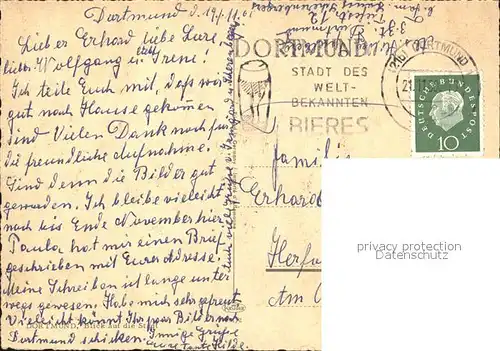 Dortmund d. 19./11. 61
Lieber Erhard liebe Lore,
lieber Wolfgang und Irene!
Ich teile Euch mit, daß wir
gut nach Hause gekommen
sind. Vielen Dank noch für
die freundliche Aufnahme.
Sind denn die Bilder gut
geworden. Ich bleibe vieleicht
noch bis Ende November hier.
Paula hat mir einen Brief
geschrieben mit Eurer Adresse.
Meine Schreiben ist lange unter
wegs gewesen. Habe mich sehr gefreut
Vieleicht könnt Ihr paar Bilder nach
Dortmund schicken. Innige Grüße
Eure Tante
DORTMUND, Blick auf die Stadt
DORTMUND
STADT DES
WELT-
BEKANNTEN
BIERES
DORTMUND
21.11.
DEUTSCHE BUNDESPOST
10
Familie
Erhard
Herfo
Am
privacy protection
Datenschutz